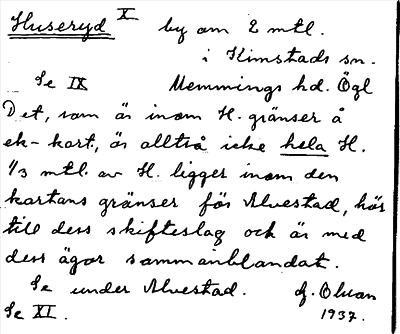 Huseryd X by om 2 mtl.
i Kimstads sn.
Se IX Memmings hd. Ögl
Det, som är inom H. gränser å
ek-kart, är alltså icke hela H.
1/3 mtl. av H. ligger inom den
kartans gränser för Alvestad, hör
till dess skifteslag och är med
dess ägor sammanblandat.
Se under Alvestad. G. Olsson
Se XI. 1937.